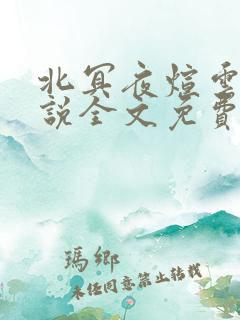 北冥夜煊雲
說全文免費
瑪鄉
未经同意禁止转载